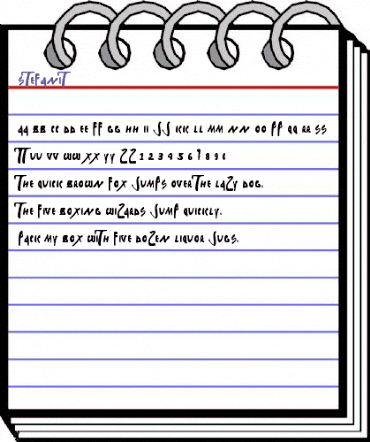 STEFANIT
AA BB CC DD EE FF GG HH II JJ KK LL MM NN OO PP QQ RR SS
TT UU VV WW XX YY ZZ 1 2 3 4 5 6 7 8 9 0
THE QUICK BROWN FOX JUMPS OVER THE LAZY DOG.
THE FIVE BOXING WIZARDS JUMP QUICKLY.
PACK MY BOX WITH FIVE DOZEN LIQUOR JUGS.